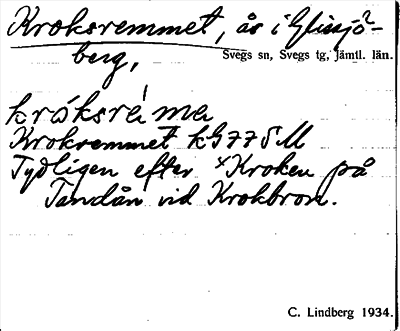 Kroksremmet, ås i Glissjö-
berg, Svegs sn, Svegs tg, Jämtl. län.
króksrèma
Krokremmet kG77SM
Tydligen efter ˣKroken på
Tandån vid Krokbron.
C. Lindberg 1934.